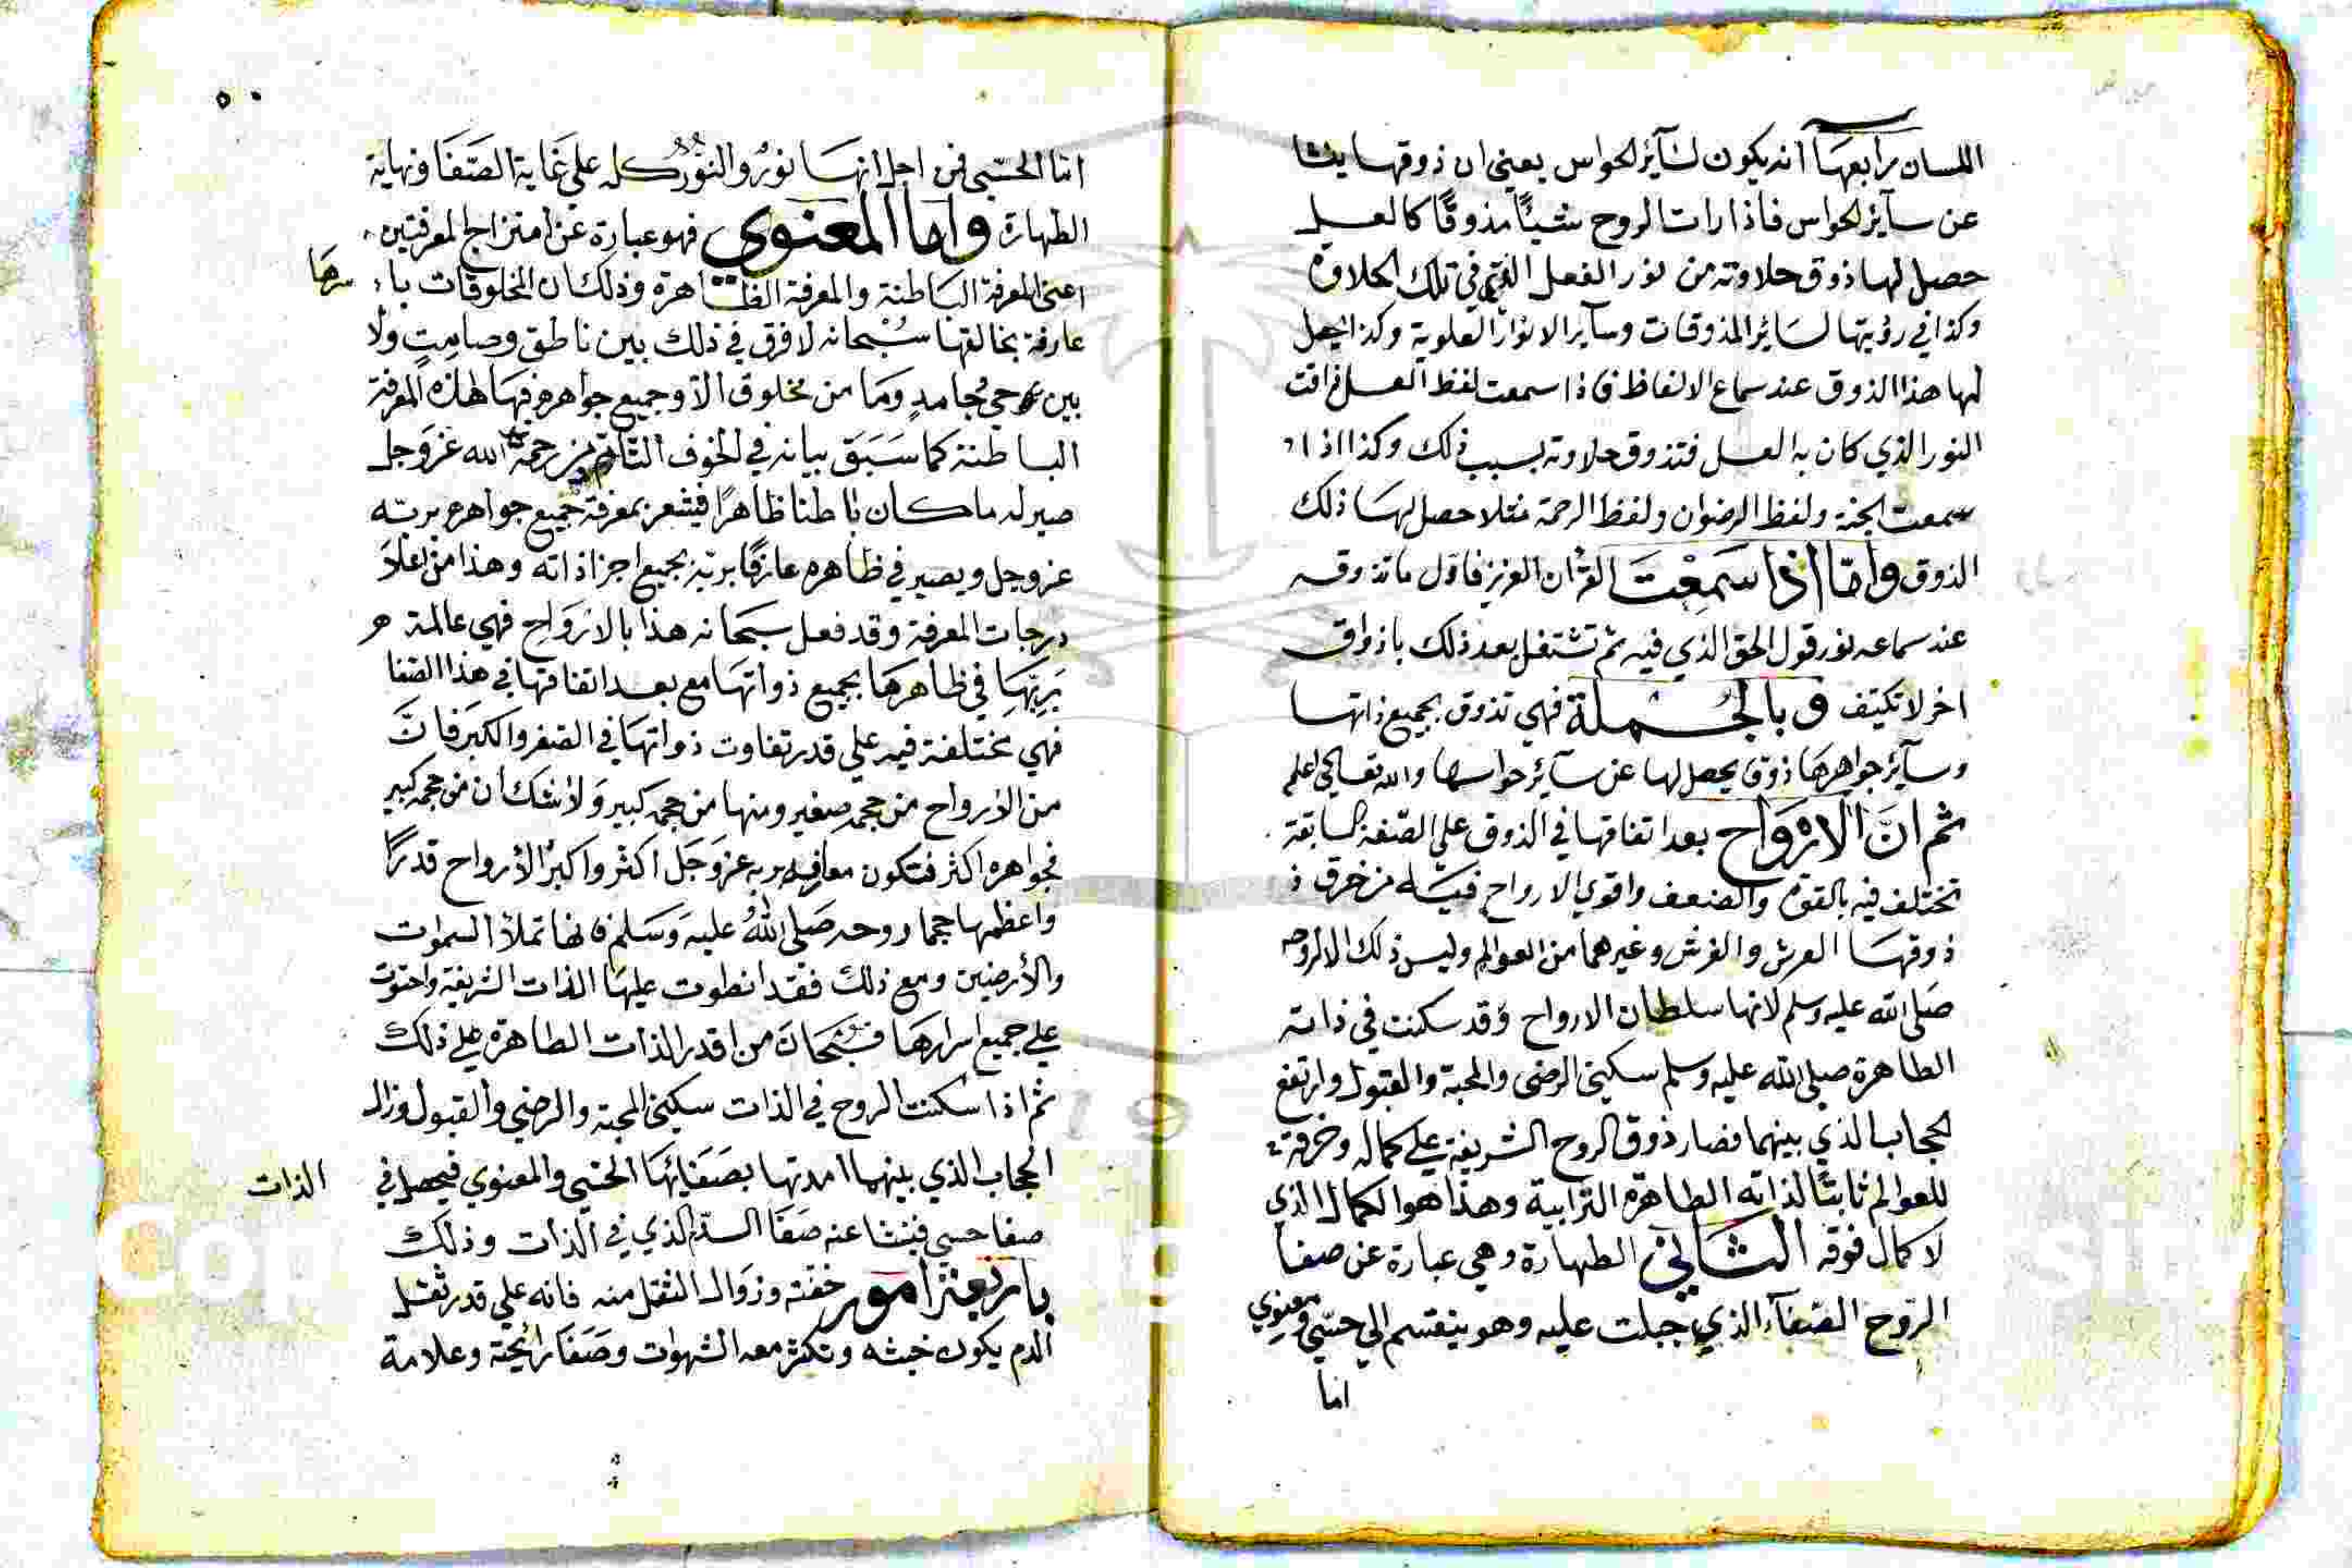 اللسان رابعها انه يكون لسآئر الحواس يعني ان ذوقها ينشا
عن سآئر الحواس فاذا رات الروح شيئًا مذوقًا كالعسل
حصل لها ذوق حلاوته من نور الفعل الذي في تلك الحلاوة
وكذا في رؤيتها لسائر المذوقات وسآير الانوار العلوية وكذا يحصل
لها هذا الذوق عند سماع الالفاظ فاذا سمعت لفظ العسل فراقت
النور الذي كان به العسل فتذوق حلاوته بسبب ذلك وكذا اذا
سمعت الجنة ولفظ الرضوان ولفظ الرحمة مثلا حصل لها ذلك
الذوق وامّا اذا سَمِعْتَ القرْان العزيز فاول ما تذوقه
عند سماعه نور قول الحق الذي فيه ثم تشتغل بعد ذلك باذواق
اخر لا تكيّف وبالجُملة فهي تذوق بجميع ذاتها
وسآئر جواهرها ذوق يحصل لها عن سآئر حواسها والله تعالى اعلم
ثم انّ الارْوَاح بعد اتفاقها في الذوق علي الصّفة السابقة
تختلف فيه بالقوة والضعف واقوي الارواح فيه من خرق
ذوقها العرش والفرش وغيرهما من العوالم وليس ذلك الا لروحه
صَلى الله عليه وسلم لانها سلطان الارواح وقد سكنت في ذاته
الطاهرة صلي الله عليه وسلم سكيني الرضي والمحبة والقبول وارتفع
الحجاب الذي بينهما فصار ذوق الروح الشريفة علي كماله وخرقه
للعوالم ثابتًا لذاته الطاهرة الترابية وهذا هو الكمال الذي
لا كمال فوقه الثاني الطهارة وهي عبارة عن صفا
الرّوح الصّفآء الذي جبلت عليه وهو ينقسم الي حسّي ومعنوي
اما
٥٠
اما الحسّي فمن اجل انها نورٌ والنُّور كله علي غَاية الصّفَا ونهاية
الطهارة وامّا المعنوي فهو عبارة عن امتزاج المعرفتين
اعني المعرفة الباطنة والمعرفة الظاهرة وذلك ان المخلوقات با
سرها
عارفة بخالقها سُبْحانه لا فرق في ذلك بين ناطق وصامتٍ ولا
بين حي وجامدٍ وَما من مخلوق الا وجميع جواهره فيها هذه المعرفة
الباطنة كما سَبَق بيانه في الخوف التام ثم من رحمه الله عَزّوَجل
صير له ما كان باطنا ظاهرًا فيشعر بمعرفة جميع جواهره بربّه
عز وجل ويصير في ظاهره عارفًا بربّه بجميع اجزا ذاته وهذا من اعلا
درجات المعرفة وقد فعل سبحانه هذا بالارْوَاح فهي عالمة
بَرِبّهَا في ظاهرهَا بجميع ذواتهَا مع بعد اتفاقها في هذا الصّفا
فهي مختلفة فيه علي قدر تفاوت ذواتهَا في الصّغر والكبر فانَّ
من الأرواح من حجمه صغير ومنها من حجمه كبير وَلا شك ان من حجمه كبير
فجواهره اكثر فتكون معارفه بربه عزوَجَل اكثر واكبرُ الأرواح قدرًا
واعظمها حجما روحه صَلى اللّهُ عليه وَسَلم فانها تملأ السموات
والأرضين ومع ذلك فقد انطوت عليهَا الذات الشريفة واحتوت
علي جميع اسرارهَا فسُبْحَانَ من اقدر الذات الطاهرة علي ذلك
ثم اذا سكنت الروح في الذات سكيني المحبة والرضي والقبول وزال
الحجاب الذي بينهما امدتها بصَفَائهَا الحسّي والمعنوي فيحصل في
الذات
صفا حسي فينشا عنه صَفَا الدّم الذي في الذات وذلك
باربعة امور خفّته وزوَال الثقل منه فانه علي قدر ثقل
الدم يكون خبثه وتكثر معه الشهوات وصَفَا رائحته وعلامة